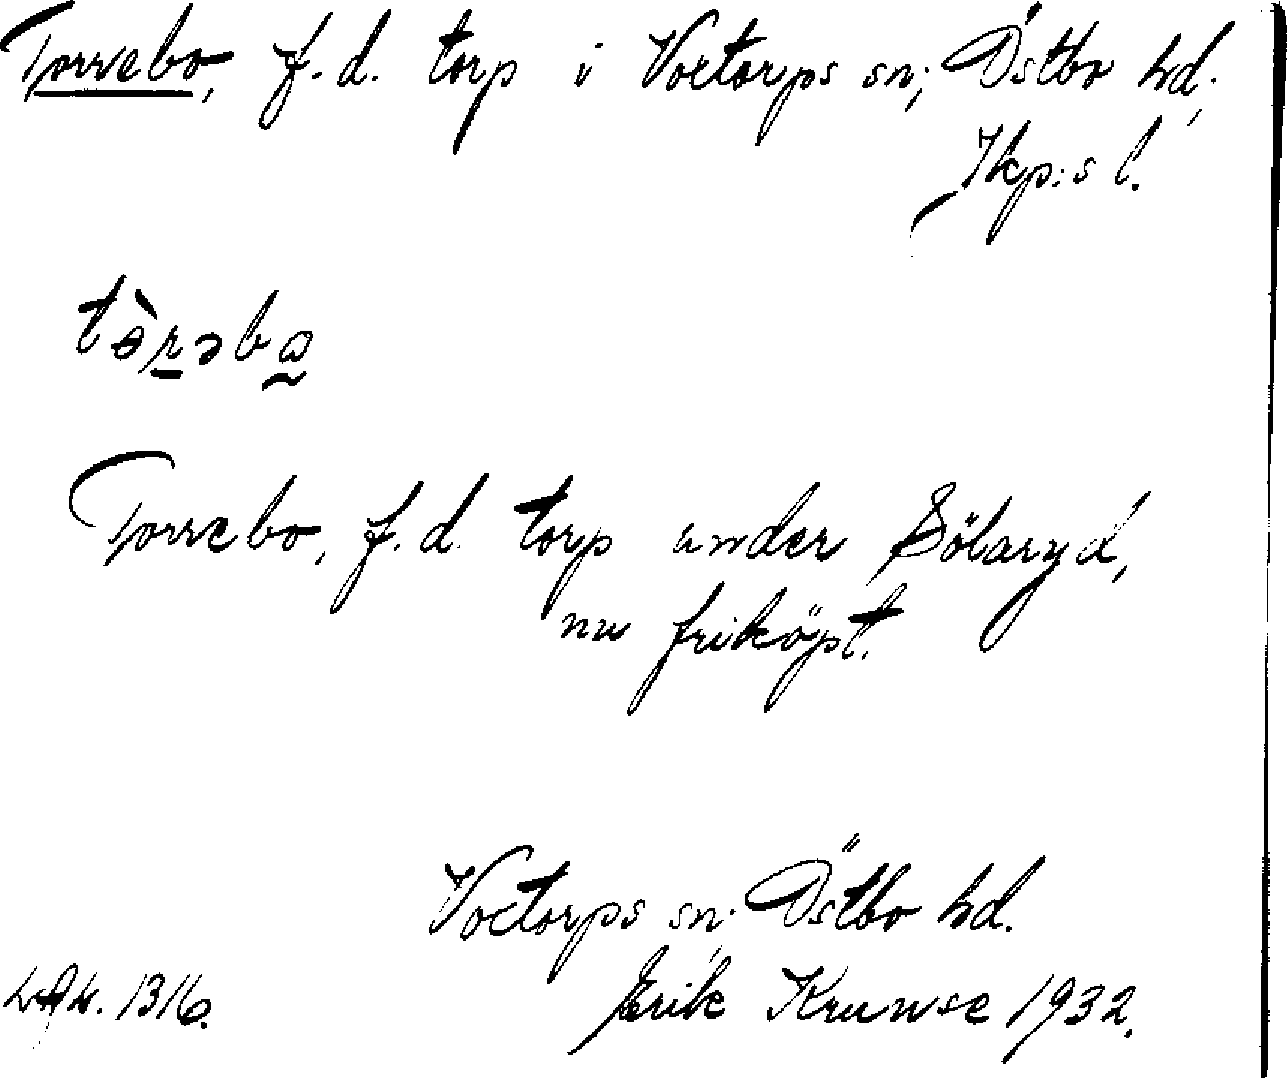 Torrebo, f.d. torp i Voxtorps sn; Östbo hd;
Jkp:s l.
tɵ̀rəbɷ
Torrebo, f.d. torp under Sölaryd,
nu friköpt.
Voxtorps sn; Östbo hd.
Erik Krunse 1932.
1316.